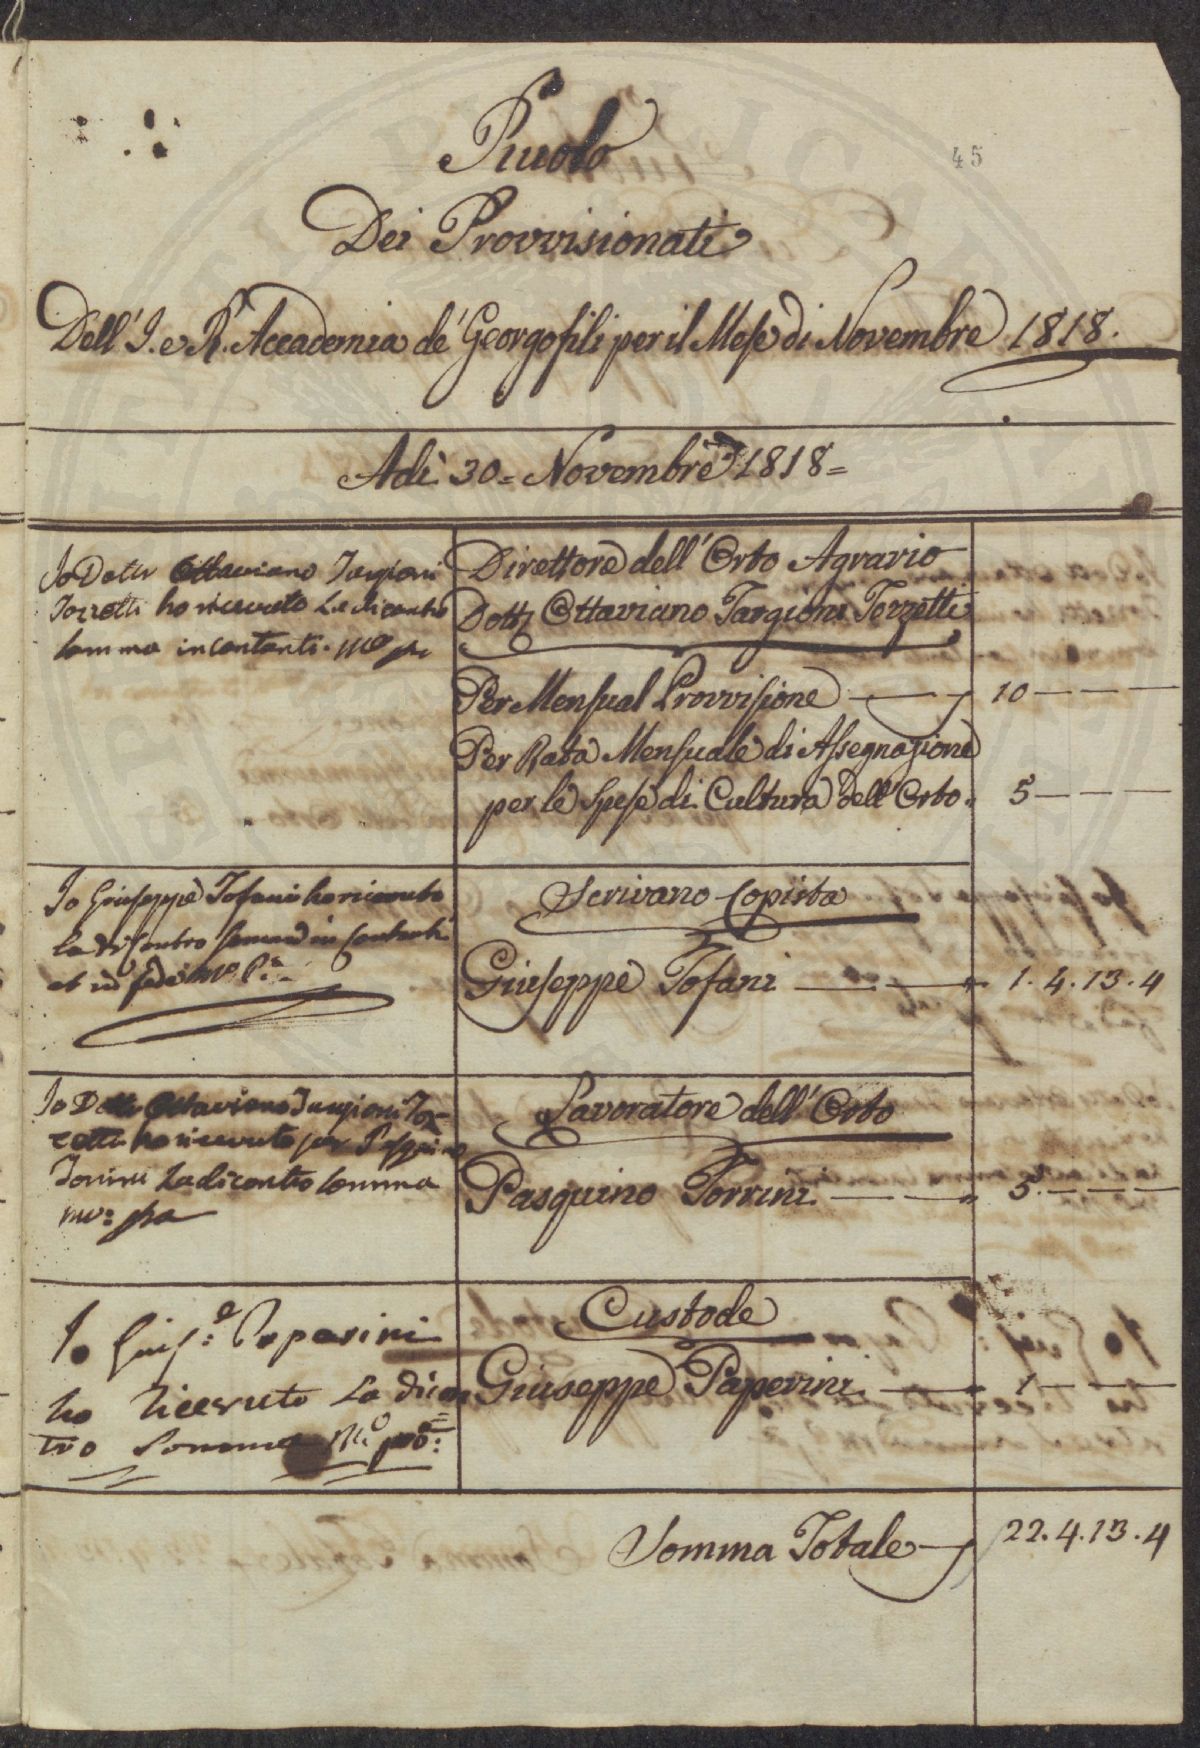 Ruolo
45
Dei Provvisionati
Dell' I. e R. Accademia de' Georgofili per il Mese di Novembre 1818.
Adi 30 = Novembre 1818 =
Io Dottr Ottaviano Targioni
Tozzetti ho ricevuto La dicontro
somma in contanti. mo pa
Direttore dell' Orto Agrario
Dottr Ottaviano Targioni Tozzetti
Per Mensual Provvisione 10
Per Rata Mensuale di Assegnazione
per le Spese di Cultura dell' Orto. 5
Io Giuseppe Tofani ho ricevuto
la di contro somma in contanti
et in fede Mo. Pa
Scrivano Copista
Giuseppe Tofani 1. 4. 13. 4
Io Dottr Ottaviano Targioni Toz
zetti ho ricevuto per Pasquino
Torrini La dicontro somma
mo: pa
Lavoratore dell' Orto
Pasquino Torrini 5.
Io Giuse: Paperini
ho Riceuto La dicon
tro Somma Mo. pro:
Custode
Giuseppe Paperini 1
Somma Totale 22. 4. 13. 4